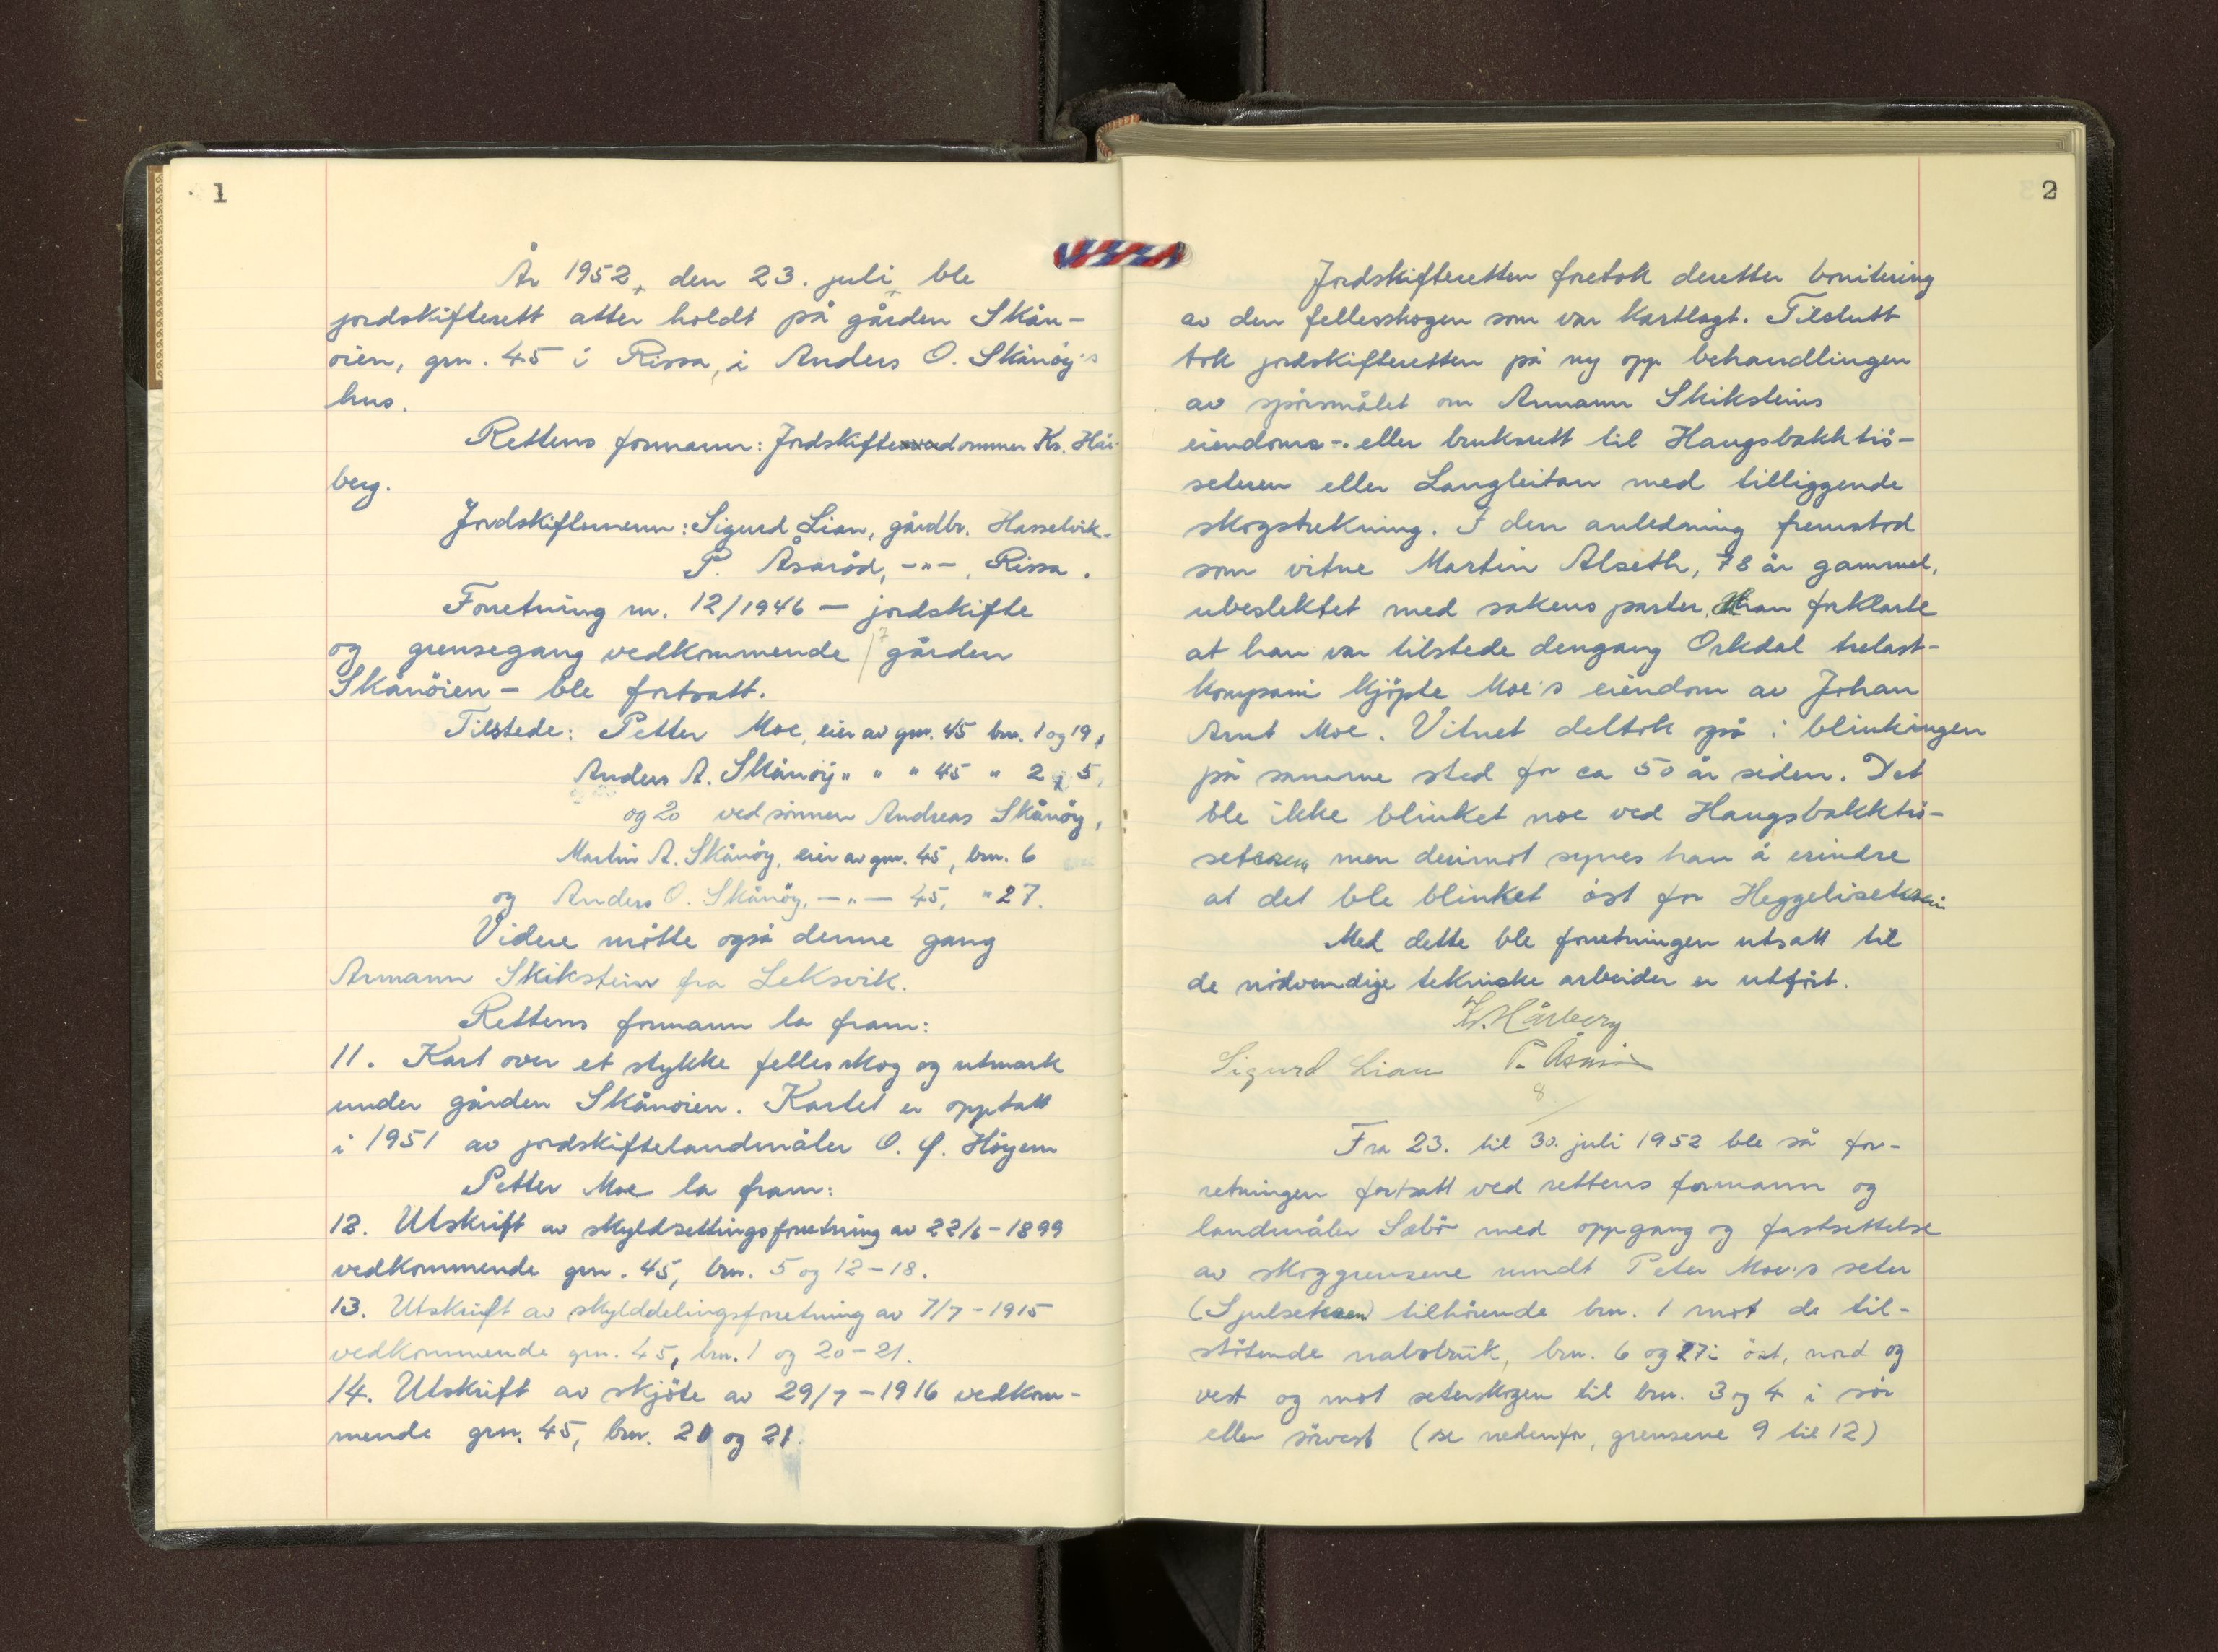 1
År 1952, den 23. juli, ble
jordskifterett atter holdt på gården Skån-
öien, grn. 45 i Rissa, i Anders O. Skånöy's
hus.
Rettens formann: Jordskiftedommer Kr. Hår-
berg.
Jordskiftemenn: Sigurd Lian, gårdbr. Hasselvik.
P. Åsaröd, -"-, Rissa.
Forretning nr. 12/1946 — jordskifte
og grensegang vedkommende gården
Skånöien - ble fortsatt.
Tilstede: Petter Moe, eier av grn. 45 brn. 1 og 19,
Anders A. Skånöy " " " 45 " 2, 5,
og 20 ved sönnen Andreas Skånöy,
Martin A. Skånöy, eier av grn. 45, brn. 6
og Anders O. Skånöy, -"- 45, " 27.
Videre mötte også denne gang
Armann Skikstein fra Leksvik.
Rettens formann la fram:
11. Kart over et stykke felles skog og utmark
under gården Skånöien. Kartet er opptatt
i 1951 av jordskiftelandmåler O. J. Höyem
Petter Moe la fram:
12. Utskrift av skyldsettingsforretning av 22/6-1899
vedkommende grn. 45, brn. 5 og 12-18.
13. Utskrift av skylddelingsforretning av 7/7-1915
vedkommende grn. 45, brn. 1 og 20-21.
14. Utskrift av skjöte av 29/7-1916 vedkom-
mende grn. 45, brn. 20 og 21.
2
Jordskifteretten foretok deretter bonitering
av den fellesskogen som var kartlagt. Tilslutt
tok jordskifteretten på ny opp behandlingen
av spörsmålet om Armann Skiksteins
eiendoms- eller bruksrett til Haugsbakktrö-
seteren eller Langleitan med tilliggende
skogstrekning. I den anledning fremstod
som vitne Martin Alseth, 78 år gammel,
ubeslektet med sakens parter. Han forklarte
at han var tilstede dengang Orkdal trelast-
kompani kjöpte Moe's eiendom av Johan
Arnt Moe. Vitnet deltok også i blinkingen
på samme sted for ca 50 år siden. Det
ble ikke blinket noe ved Haugsbakktrö-
seteren, men derimot synes han å erindre
at det ble blinket öst for
Med dette ble forretningen utsatt til
de nödvendige tekniske arbeider er utfört.
Kr. Hårberg
Sigurd Lian P.
8
Fra 23. til 30. juli 1952 ble så for-
retningen fortsatt ved rettens formann og
landmåler Sæbö med oppgang og fastsettelse
av skoggrensene rundt Peter Moe's seter
(Sjulseteren) tilhörende brn. 1 mot de til-
stötende nabobruk, brn. 6 og 27 i öst, nord og
vest og mot seterskogen til brn. 3 og 4 i sör
eller sörvest (se nedenfor, grensene 9 til 12)